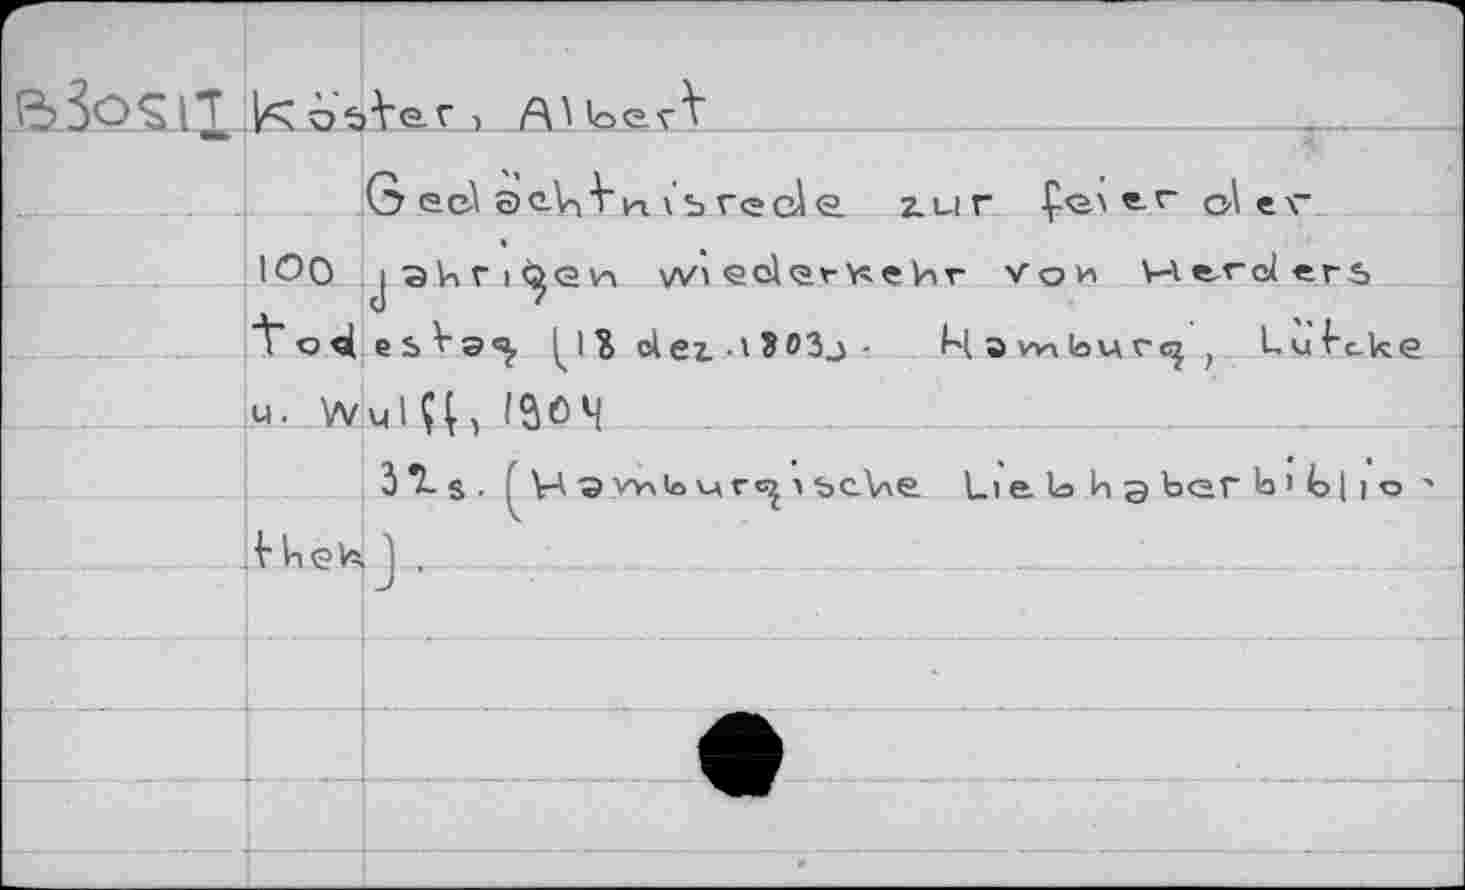 Köster, Albert
Gedächtnisrede zur Feier der
100 jahrigen wiederkehr von Herders
Todestag [18 dez. 1803]. Hamburg, Lütcke
u. Wulff, 1904
32s. (Hamburgische Liebhaberbiblio-
thek).